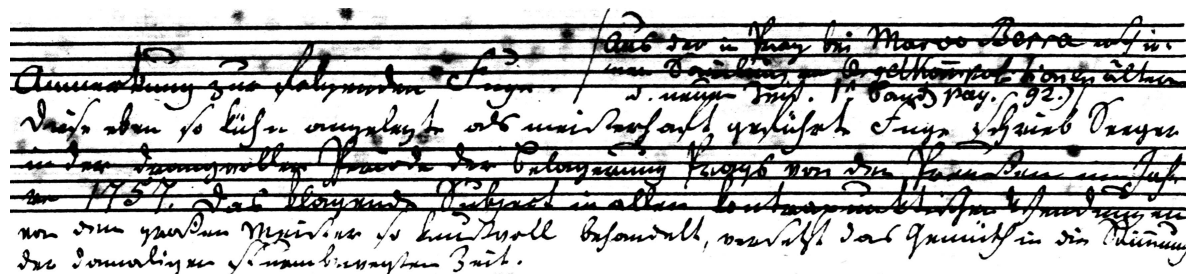 (Aus der in Prag bei Marco Berra erschie-
nen Sammlung von Orgelkompositionen älterer
Anmerkung zur folgenden Fuge. u. neuer Zeit. 1r Band pag. 92.)
Diese eben so kühn angelegte als meisterhaft geführte Fuge schrieb Seeger
in der drangvollen Periode der Belagerung Prags von den Preußen im Jah-
re 1757. Das klagende Subject in allen kontrapunktischen Wendungen
von dem großen Meister so kunstvoll behandelt, versetzt das Gemüth in die Stimmung
der damaligen sturmbewegten Zeit.